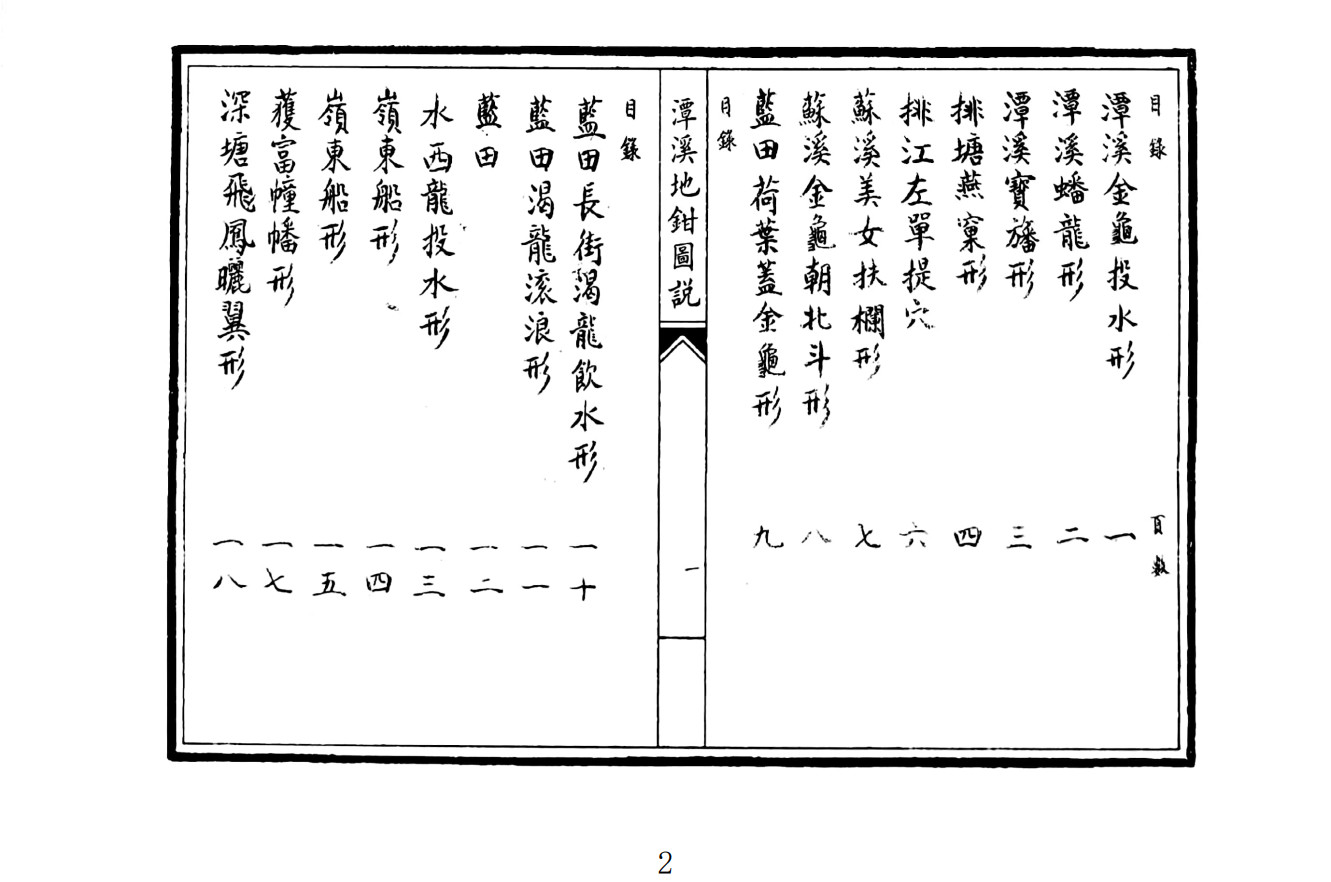 目錄
頁數
潭溪金龜投水形 一
潭溪蟠龍形 二
潭溪寶旛形 三
排塘燕窠形 四
排江左單提穴 六
蘇溪美女扶欄形 七
蘇溪金龜朝北斗形 八
藍田荷葉蓋金龜形 九
目錄
潭溪地鉗圖説
一
目錄
藍田長街渴龍飲水形 一十
藍田渴龍滚浪形 一一
藍田 一二
水西龍投水形 一三
嶺東船形 一四
嶺東船形 一五
獲富幢幡形 一七
深塘飛鳳曬翼形 一八
2